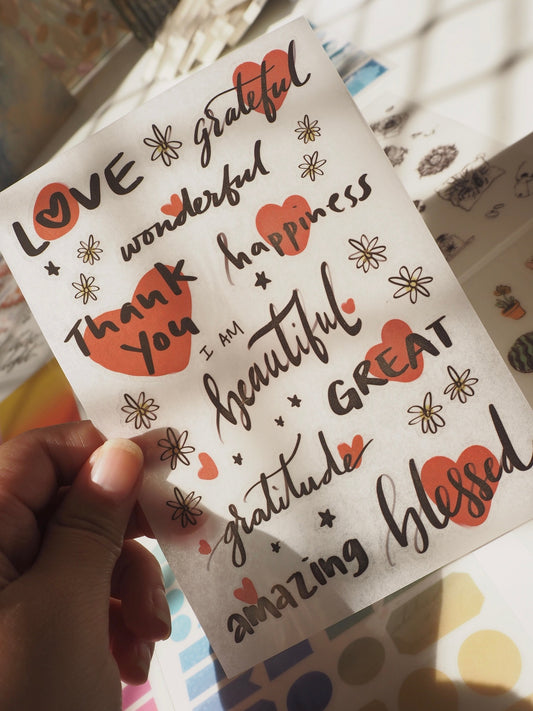 grateful
LOVE
wonderful
happiness
Thank
You
I AM
beautiful
GREAT
gratitude
blessed
amazing